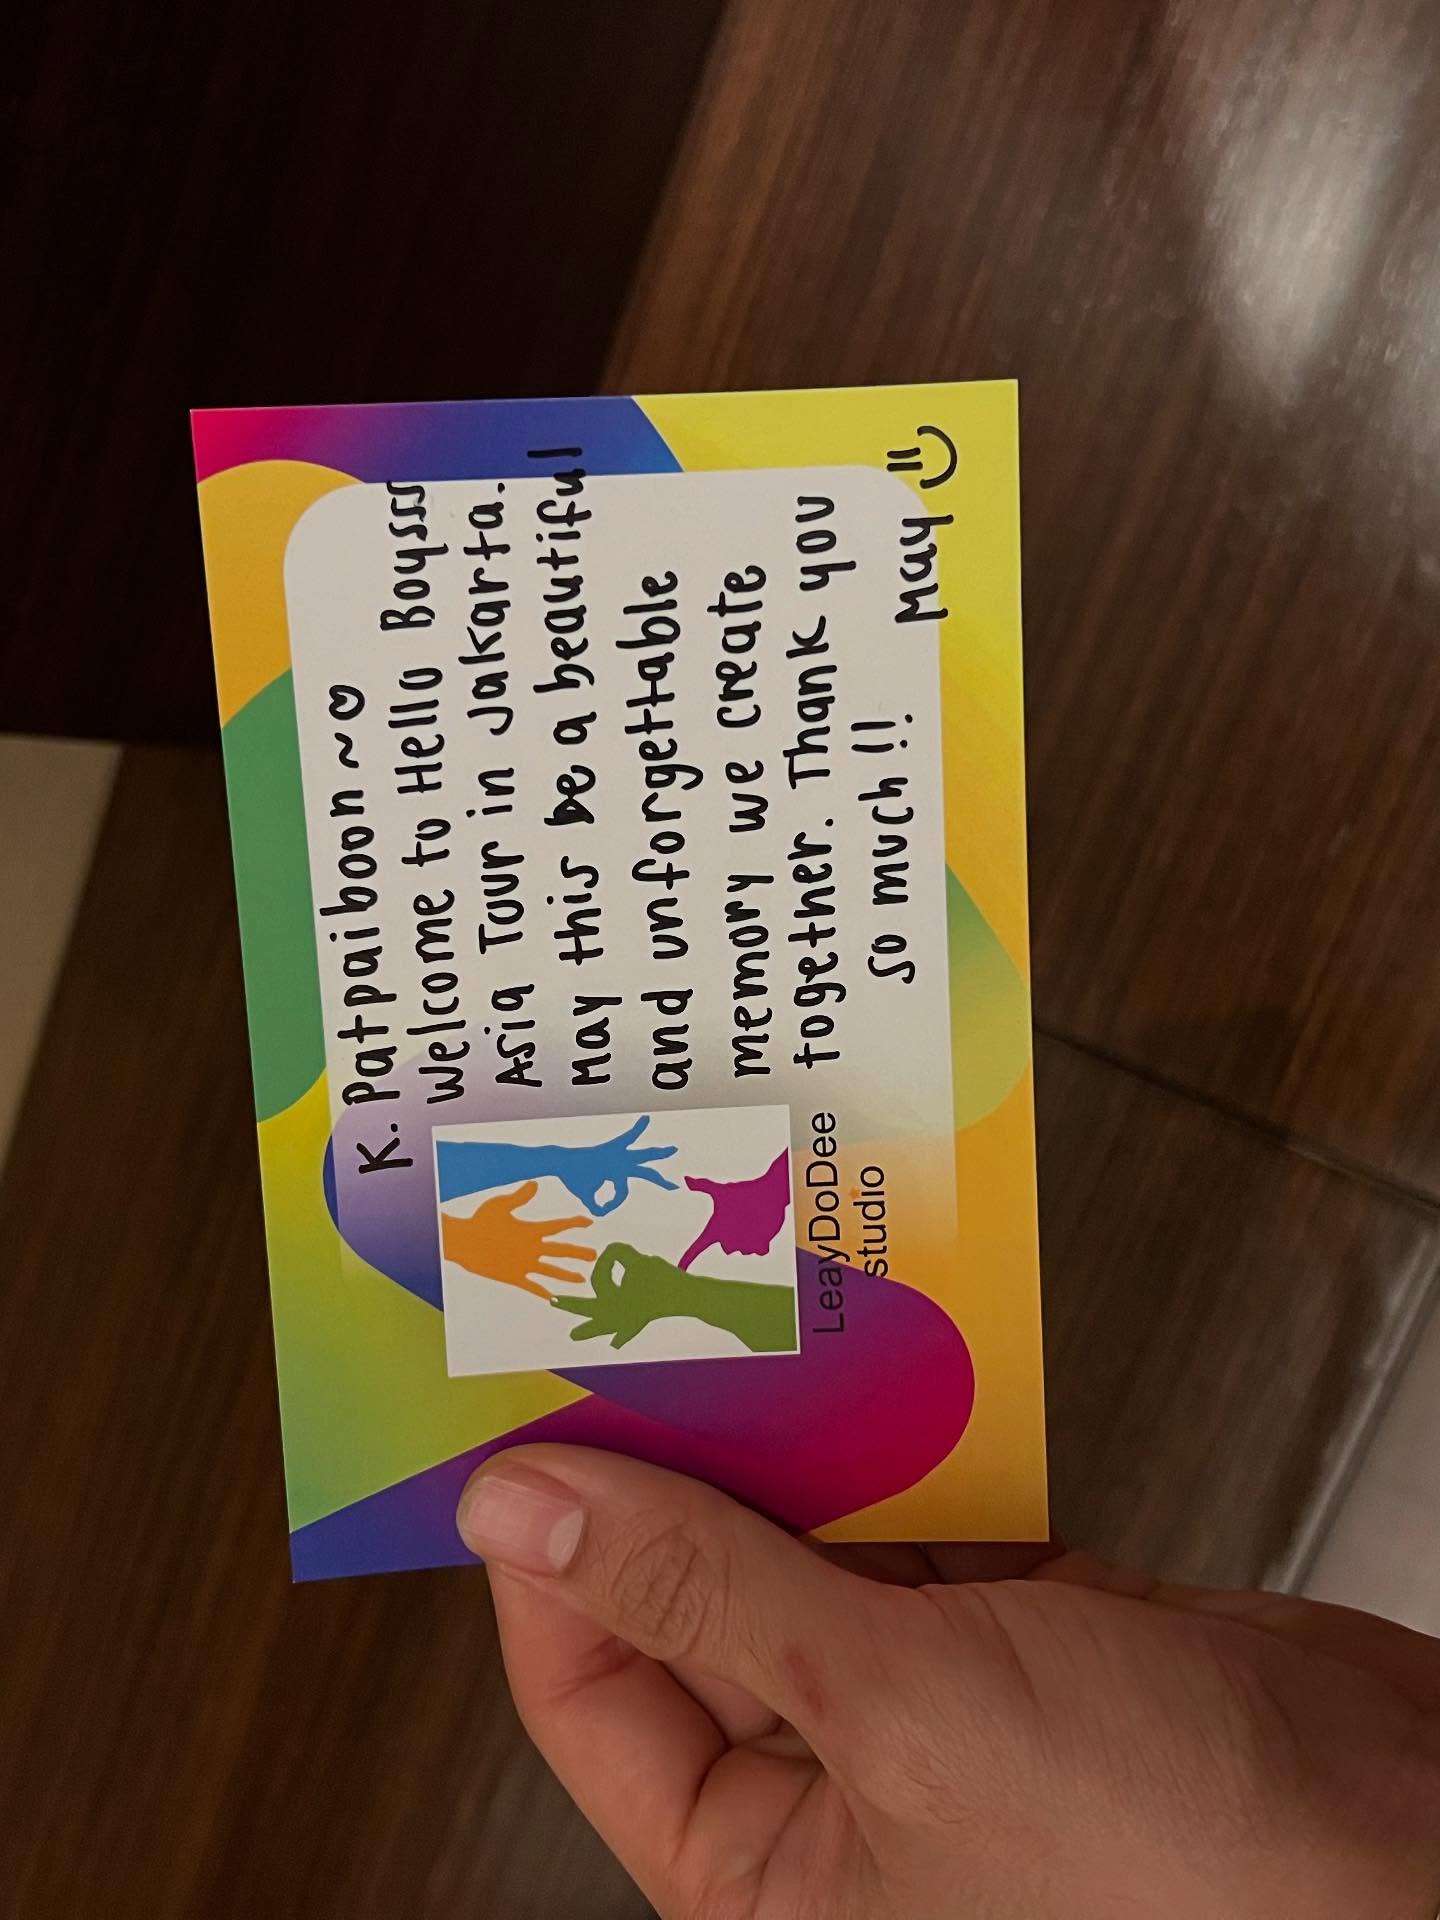 K. Patpaiboon ~♡
Welcome to Hello Boysss
Asia Tour in Jakarta.
May this be a beautiful
and unforgettable
memory we create
together. Thank you
so much!!
May =)
LeayDoDee
studio